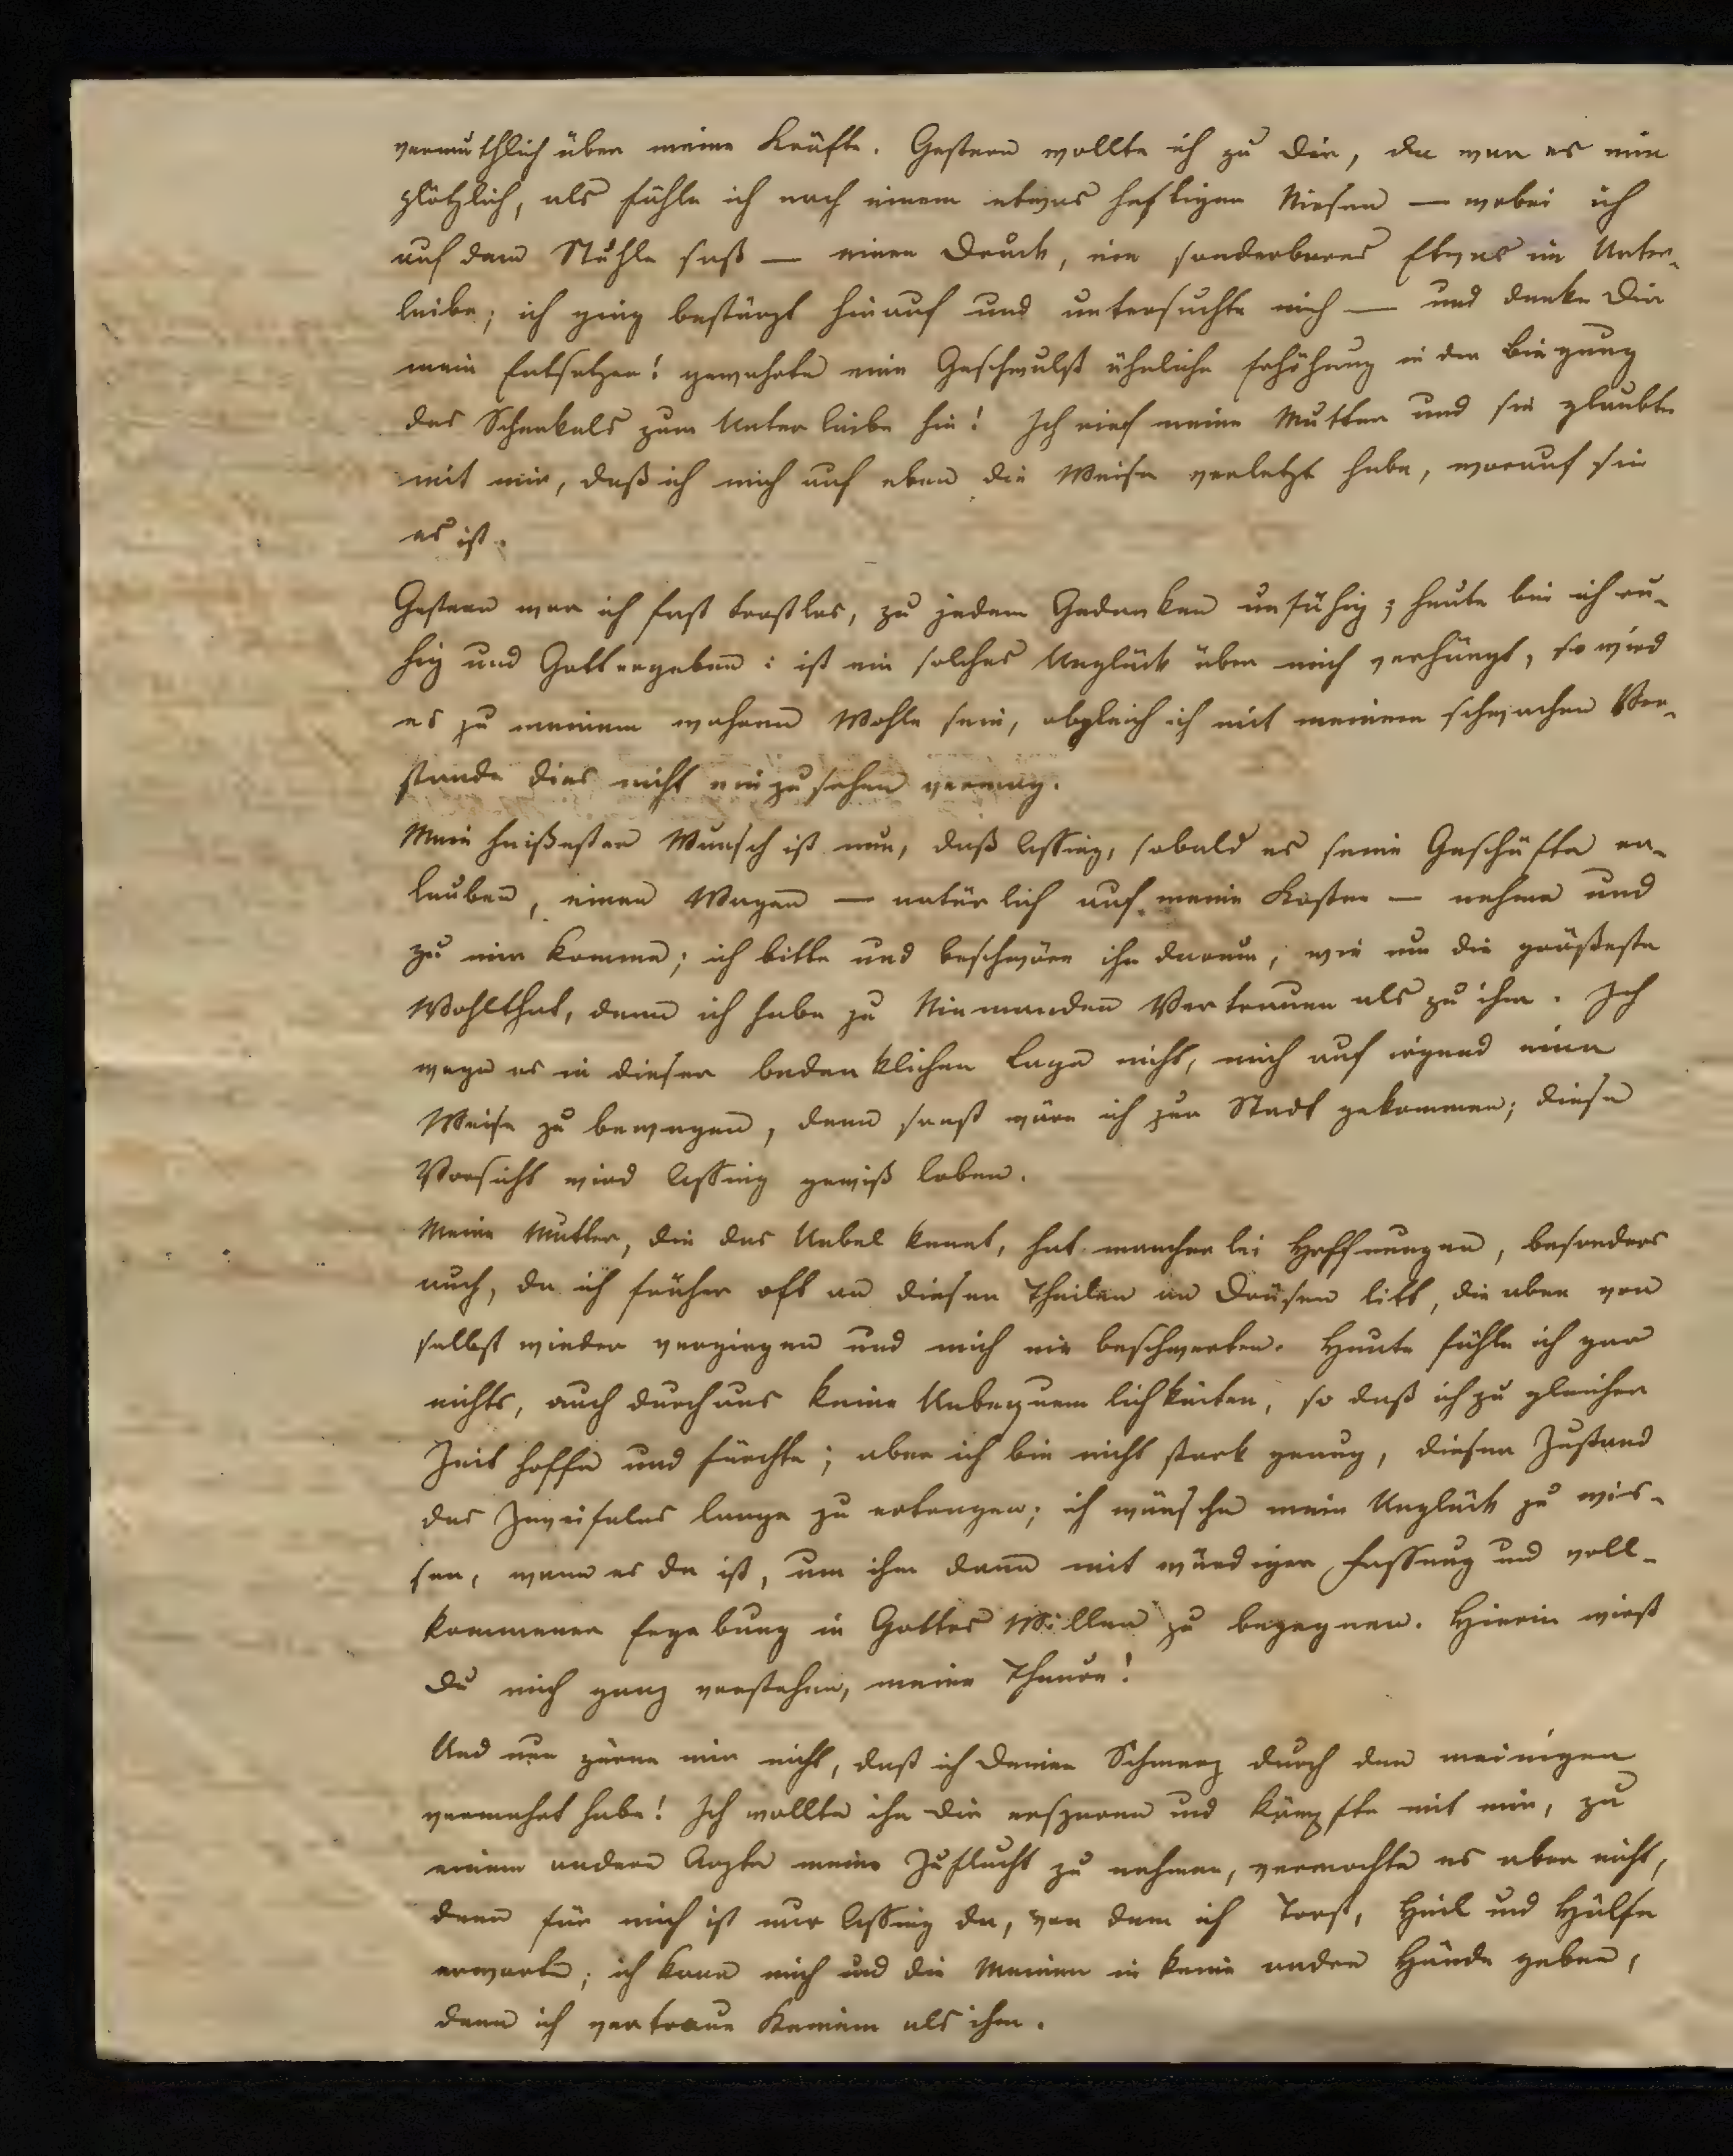 vermuthlich über meine Kräfte. Gestern wollte ich zu Dir, da war es mir
plötzlich, als fühle ich nach einem etwas heftigen Niesen — wobei ich
auf dem Stuhle saß — einen Druck, ein sonderbares Etwas im Unter-
leibe; ich ging bestürzt hinauf und untersuchte mich — und denke Dir
mein Entsetzen! gewahrte eine Geschwulst ähnliche Erhöhung in der Biegung
des Schenkels zum Unterleibe hin! Ich rief meine Mutter und sie glaubte
mit mir, daß ich mich auf eben die Weise verletzt habe, worauf sie
es ist.
Gestern war ich fast trostlos, zu jedem Gedanken unfähig; heute bin ich ru-
hig und Gottergeben: ist ein solches Unglück über mich verhängt, so wird
es zu meinem wahren Wohle sein, obgleich ich mit meinem schwachen Ver-
stande dies nicht einzusehen vermag.
Mein heißester Wunsch ist nun, daß Lessing, sobald es seine Geschäfte er-
lauben, einen Wagen — natürlich auf meine Kosten — nehme und
zu mir komme; ich bitte und beschwöre ihn darum, wie um die größeste
Wohlthat, denn ich habe zu Niemanden Vertrauen als zu ihm. Ich
wage es in dieser bedenklichen Lage nicht, mich auf irgend eine
Weise zu bewegen, denn sonst wäre ich zur Stadt gekommen; diese
Vorsicht wird Lessing gewiß loben.
Meine Mutter, die das Uebel kennt, hat mancherlei Hoffnungen, besonders
auch, da ich früher oft an diesen Theilen an Drüsen litt, die aber von
selbst wieder vergingen und mich nie beschwerten. Heute fühle ich gar
nichts, auch durchaus keine Unbequemlichkeiten, so daß ich zu gleicher
Zeit hoffe und fürchte; aber ich bin nicht stark genug, diesen Zustand
des Zweifels lange zu ertragen; ich wünsche mein Unglück zu wis-
sen, wenn es da ist, um ihm dann mit würdiger Fassung und voll-
kommener Ergebung in Gottes Willen zu begegnen. Hierin wirst
Du mich ganz verstehen, meine Theure!
Und nun zürne mir nicht, daß ich Deinen Schmerz durch den meinigen
vermehrt habe! Ich wollte ihn Dir ersparen und kämpfte mit mir, zu
einem andern Arzte meine Zuflucht zu nehmen, vermochte es aber nicht,
denn für mich ist nur Lessing da, von dem ich Trost, Heil und Hülfe
erwarte; ich kann mich und die Meinen in keine andre Hände geben,
denn ich vertraue Keinem als ihm.